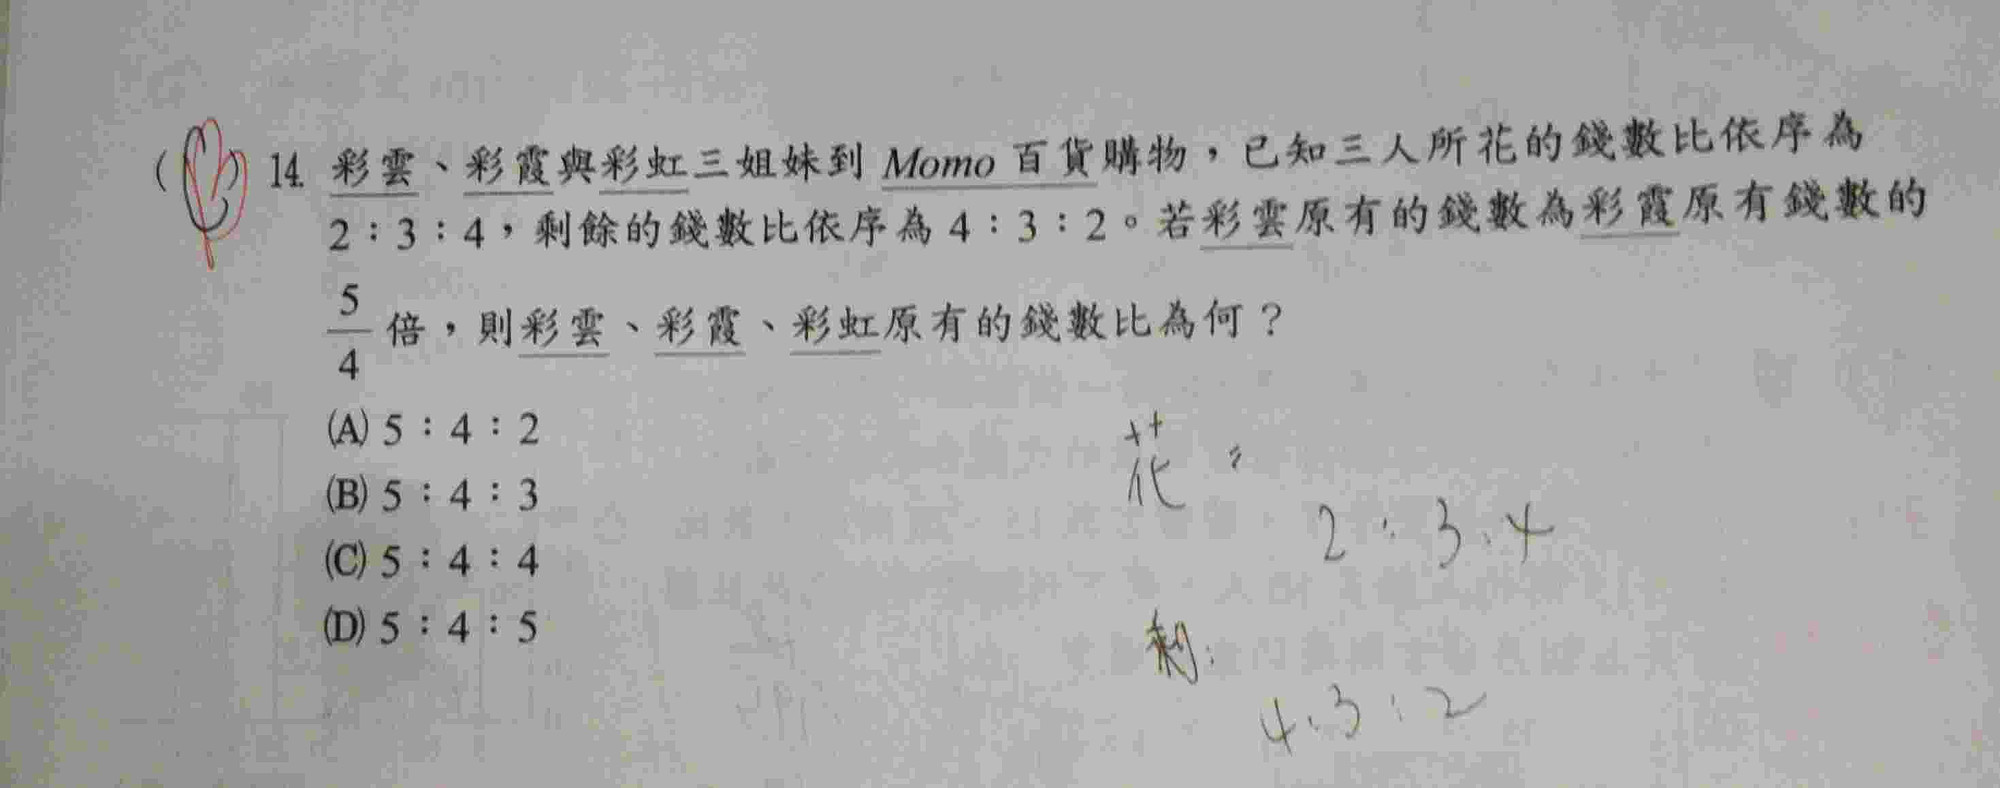 ( ) 14. 彩雲、彩霞與彩虹三姐妹到 Momo 百貨購物，已知三人所花的錢數比依序為
2：3：4，剩餘的錢數比依序為 4：3：2。若彩雲原有的錢數為彩霞原有錢數的
5/4 倍，則彩雲、彩霞、彩虹原有的錢數比為何？
(A) 5：4：2
(B) 5：4：3
(C) 5：4：4
(D) 5：4：5
花：
2：3：4
剩：
4：3：2